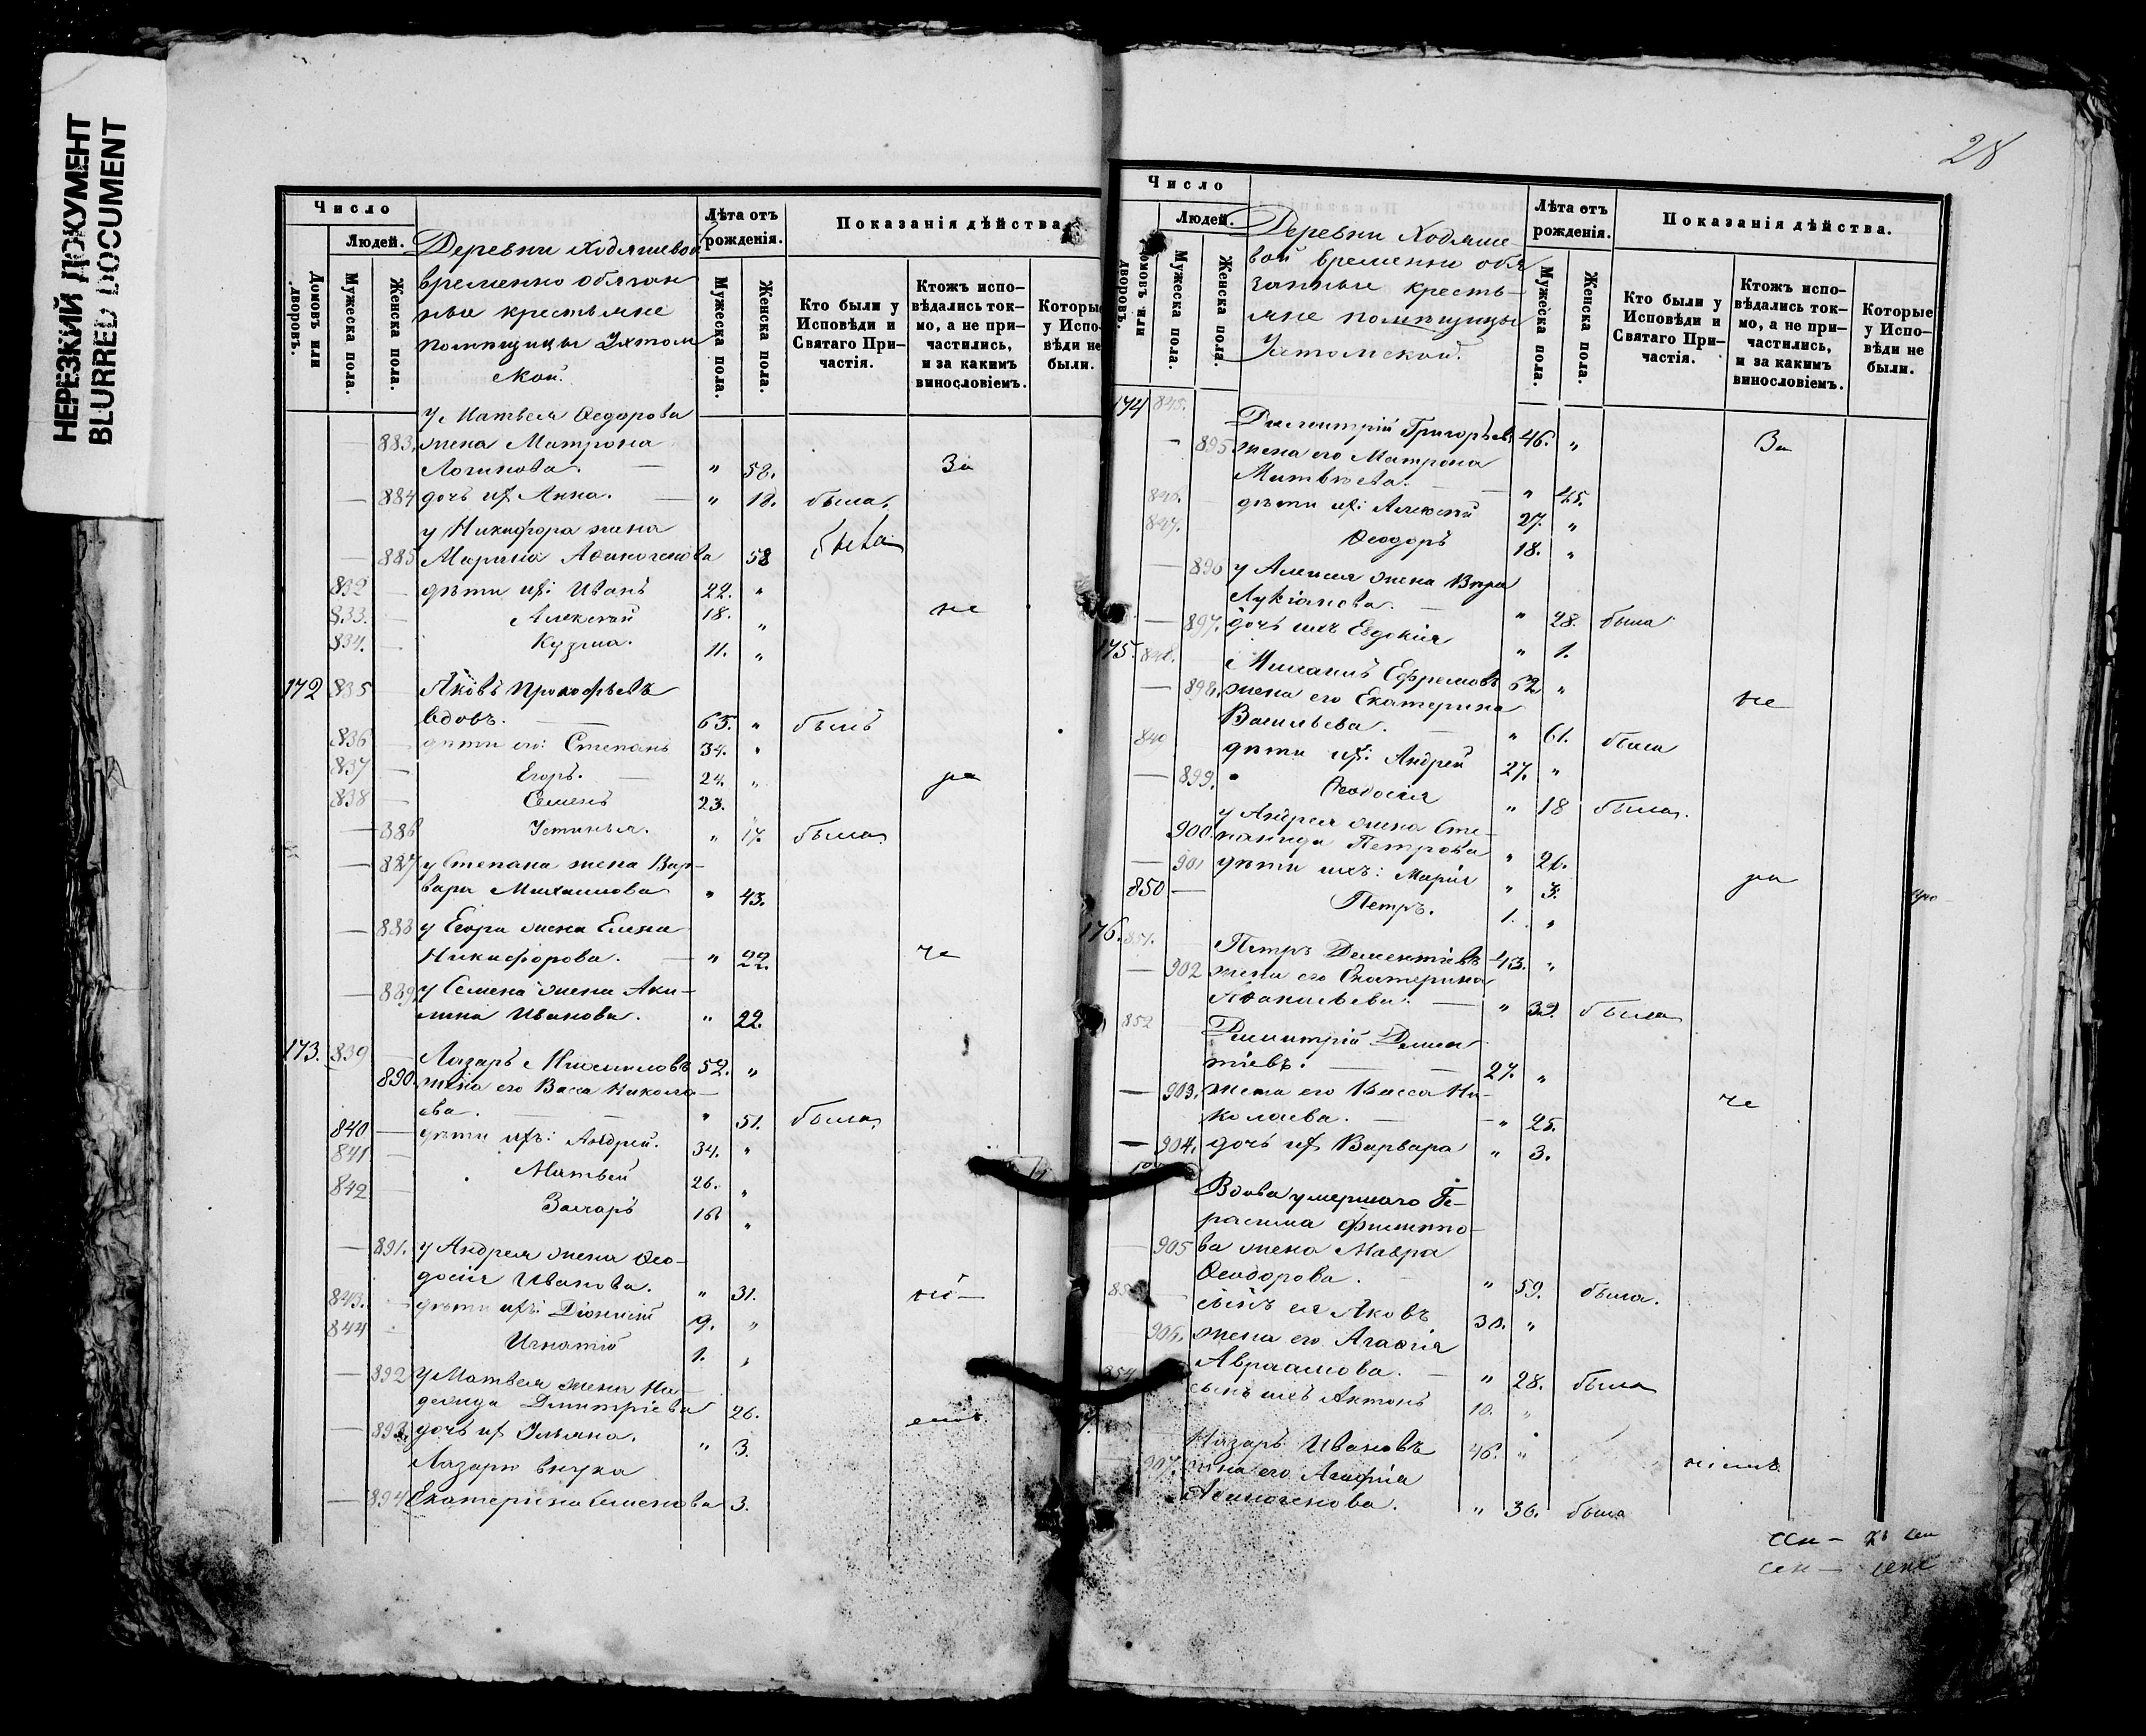 НЕРЕЗКИЙ ДОКУМЕНТ
BLURRED DOCUMENT
Число
Людей.
Домовъ или дворовъ.
Мужеска пола.
Женска пола.
Деревни Ходяшевой
временно обязан
ные крестьяне
помѣщицы Ухтом
ской.
Лѣта отъ рожденія.
Мужеска пола.
Женска пола.
Показанія дѣйства
Кто были у Исповѣди и Святаго При-частія.
Ктожъ испо-вѣдались ток-мо, а не при-частились, и за какимъ винословіемъ.
Которые у Испо-вѣди не были.
у Матвея Ѳедорова
— 883. жена Матрона
Логинова. — " 58. За
— 884 дочь их Анна. — " 18. была.
у Никифора жена
— 885 Марина Афиногенова 58 была
832 — дѣти их: Иванъ 22. "
833. — Алексѣй 18. " не
834. — Кузма. 11. "
172 835 Яковъ Прокофьевъ
вдовъ. — 63. " былъ
836 — дѣти его: Степанъ 34. "
837 — Егоръ. — 24. "
838 — Семенъ 23.
— 886 Устинья. " 17. была
— 887 у Степана жена Вар-
вара Михаилова " 43.
— 888 у Егора жена Елена
Никифорова. — " 22. че
— 889 у Семена жена Аку-
лина Иванова. " 22.
173. 839 — Лазарь 52. "
890. жена его Васа Никола-
ева. — " 51. была
840 — дѣти ихъ: Андрей. 34. "
841 — Матвей 26. "
842 — Захаръ 16 "
— 891. у Андрея жена Ѳео-
досия Иванова. " 31.
843. — дѣти ихъ: Діонисій 9. "
844 — Игнатій 1. "
— 892 у Матвея жена На-
дежда Дмитріева 26.
— 893. дочь их Ульяна. " 3.
Лазарю внука
— 894 Екатерина Семенова 3.
28
Число
Людей.
Домовъ или дворовъ.
Мужеска пола.
Женска пола.
Деревни Ходяше-
вой временно обя
занные кресть-
яне помѣщицы
Ухтомской.
Лѣта отъ рожденія.
Мужеска пола.
Женска пола.
Показанія дѣйства.
Кто были у Исповѣди и Святаго При-частія.
Ктожъ испо-вѣдались ток-мо, а не при-частились, и за какимъ винословіемъ.
Которые у Испо-вѣди не были.
174 845. Димитрій Григорьевъ 46. " За
— 895 жена его Матрона
Матвѣева. — " 45.
846. дѣти их: Алексѣй 27. "
847. Ѳеодоръ 18. "
— 896 у Алексея жена Вѣра
Лукіанова. — " 28. была
— 897. дочь ихъ Евдокия " 1.
175. 848. Ефремовъ 62 "
— 898. жена его Екатерина не
Васильева. — " 61. была
849 дѣти их: Андрей 27. "
— 899. Ѳеодосия " 18 была.
у Андрея жена Сте-
900. панида Петрова " 26.
— 901 дѣти ихъ: Марія " 3.
850 — Петръ. 1. "
176. 851. Петръ Дементіевъ 43. "
— 902 жена его Екатерина
Афанасьева. — " 39. была
852 Димитрій Демен
тіевъ. — 27. "
— 903. жена его Васса Ни- че
колаева. — " 25.
— 904. дочь их Варвара " 3.
Вдова умершаго Ге-
расима Филиппо-
— 905 ва жена Мавра
Ѳеодорова. — " 59. была.
853 — сынъ ея Яковъ 30. "
906. жена его Агафія
Авраамова. — " 28. была
854 сынъ ихъ Антонъ 10. "
Назаръ Ивановъ 46. "
907. жена его Агафіа
Афиногенова. " 36. была